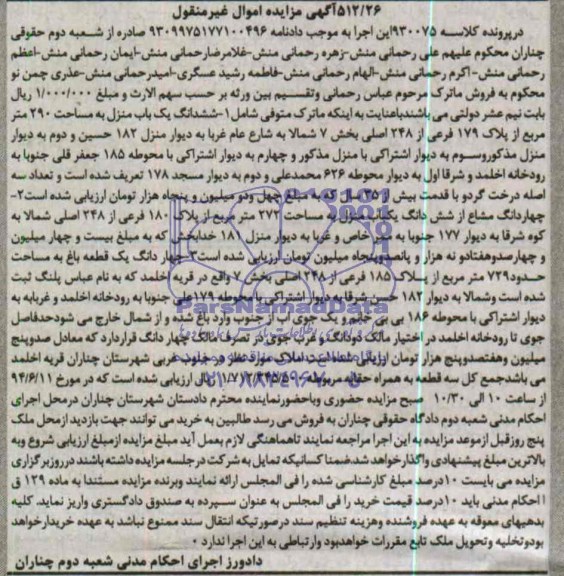 ۵۱۲/۲۶آگهی مزایده اموال غیرمنقول
درپرونده کلاسه ۹۳۰۰۷۵این اجرا به موجب دادنامه ۹۳۰۹۹۷۵۱۷۷۱۰۰۴۹۶ صادره از شعبه دوم حقوقی
چناران محکوم علیهم علی رحمانی منش-زهره رحمانی منش-غلامرضارحمانی منش-ایمان رحمانی منش-اعظم
رحمانی منش-اکرم رحمانی منش-الهام رحمانی منش-فاطمه رشید عسگری-امیدرحمانی منش-عذری چمن نو
محکوم به فروش ماترک مرحوم عباس رحمانی وتقسیم بین ورثه بر حسب سهم الارث و مبلغ ۱/۰۰۰/۰۰۰ ریال
بابت نیم عشر دولتی می باشندباعنایت به اینکه ماترک متوفی شامل۱-ششدانگ یک باب منزل به مساحت ۲۹۰ متر
مربع از پلاک ۱۷۹ فرعی از ۲۴۸ اصلی بخش ۷ شمالا به شارع عام غربا به دیوار منزل ۱۸۲ حسین و دوم به دیوار
منزل مذکوروسوم به دیوار اشتراکی با منزل مذکور و چهارم به دیوار اشتراکی با محوطه ۱۸۵ جعفر قلی جنوبا به
رودخانه اخلمد و شرقا اول به دیوار محوطه ۶۲۶ محمدعلی و دوم به دیوار مسجد ۱۷۸ تعریف شده است و تعداد سه
اصله درخت گردو با قدمت بیش از ۳۵ سال که به مبلغ چهل ودو میلیون و پنجاه هزار تومان ارزیابی شده است۲-
چهاردانگ مشاع از شش دانگ یکباب منزل به مساحت ۲۷۲ متر مربع از پلاک ۱۸۰ فرعی از ۲۴۸ اصلی شمالا به
کوه شرقا به دیوار ۱۷۷ جنوبا به ممر خاص و غربا به دیوار منزل ۱۸۱ خدابخش که به مبلغ بیست و چهار میلیون
و چهارصدوهفتادو نه هزار و پانصدوپنجاه میلیون تومان ارزیابی شده است۳-چهار دانگ یک قطعه باغ به مساحت
حدود۷۲۹ متر مربع از پلاک ۱۸۵ فرعی از ۲۴۸ اصلی بخش ۷ واقع در قریه اخلمد که به نام عباس پلنگ ثبت
شده است وشمالا به دیوار ۱۸۲ حسن شرقا به دیوار اشتراکی با محوطه ۱۷۹ علی جنوبا به رودخانه اخلمد و غربابه به
دیوار اشتراکی با محوطه ۱۸۶ بی بی خانم و یک جوی آب از جنوب وارد باغ شده و از شمال خارج می شودحدفاصل
جوی تا رودخانه اخلمد در اختیار مالک دودانگ و غرب جوی در تصرف مالک چهار دانگ قراردارد که معادل صدوپنج
میلیون وهفتصدوپنج هزار تومان ارزیابی شده است املاک مورد نظر در جنوب غربی شهرستان چناران قریه اخلمد
می باشدجمع کل سه قطعه به همراه حقابه مربوطه ریال ارزیابی شده است که در مورخ ۹۴/۶/۱۱
از ساعت ۱۰ الی ۱۰/۳۰ صبح مزایده حضوری وباحضورنماینده محترم دادستان شهرستان چناران درمحل اجرای
احکام مدنی شعبه دوم دادگاه حقوقی چناران به فروش می رسد طالبین به خرید می توانند جهت بازدید ازمحل ملک
پنج روزقبل ازموعد مزایده به این اجرا مراجعه نمایند تاهماهنگی لازم بعمل آید مبلغ مزایده ازمبلغ ارزیابی شروع وبه
بالاترین مبلغ پیشنهادی واگذارخواهد شد.ضمنا کسانیکه تمایل به شرکت درجلسه مزایده داشته باشند درروزبرگزاری
مزایده می بایست ۱۰درصد مبلغ کارشناسی شده را فی المجلس ارائه نمایند وبرنده مزایده مستندا به ماده ۱۲۹ ق
ا احکام مدنی باید ۱۰درصد قیمت خرید را فی المجلس به عنوان سپرده به صندوق دادگستری واریز نماید. کلیه
بدهیهای معوقه به عهده فروشنده وهزینه تنظیم سند درصورتیکه انتقال سند ممنوع نباشد به عهده خریدارخواهد
بودوتخلیه وتحویل ملک تابع مقررات خواهدبود وارتباطی به این اجرا ندارد.
دادورز اجرای احکام مدنی شعبه دوم چناران
ParsNamadData
۰۲۱-۸۸۳۴۹۶۷۰